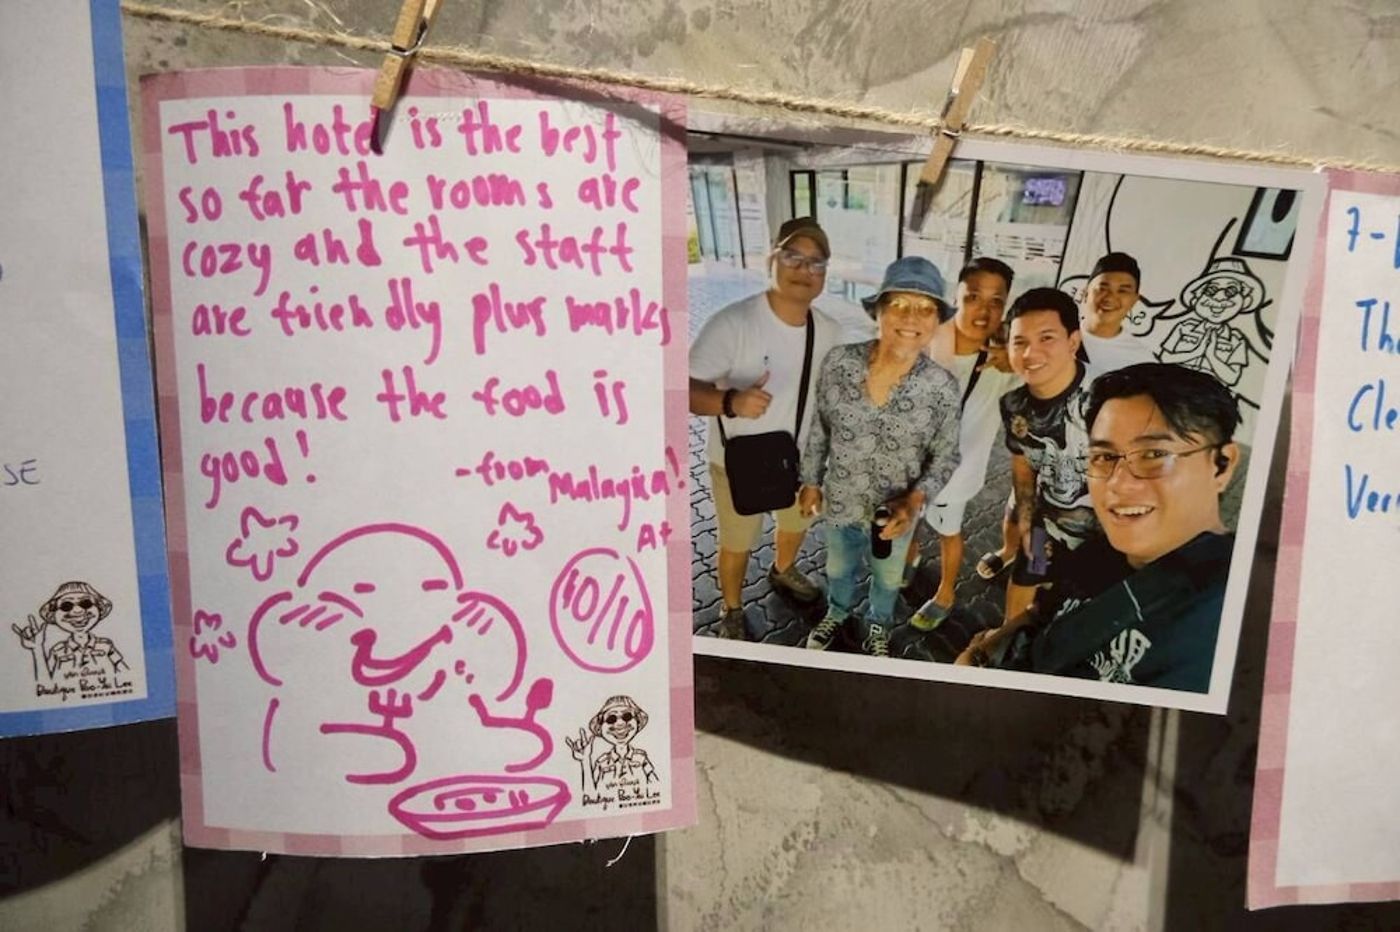 SE
Boutique Poo-Yai Lee
This hotel is the best
so far the rooms are
cozy and the staff
are friendly plus marks
because the food is
good!
-from
Malaysia!
A+
10/10
Boutique Poo-Yai Lee
7-
Th
Cle
Ver